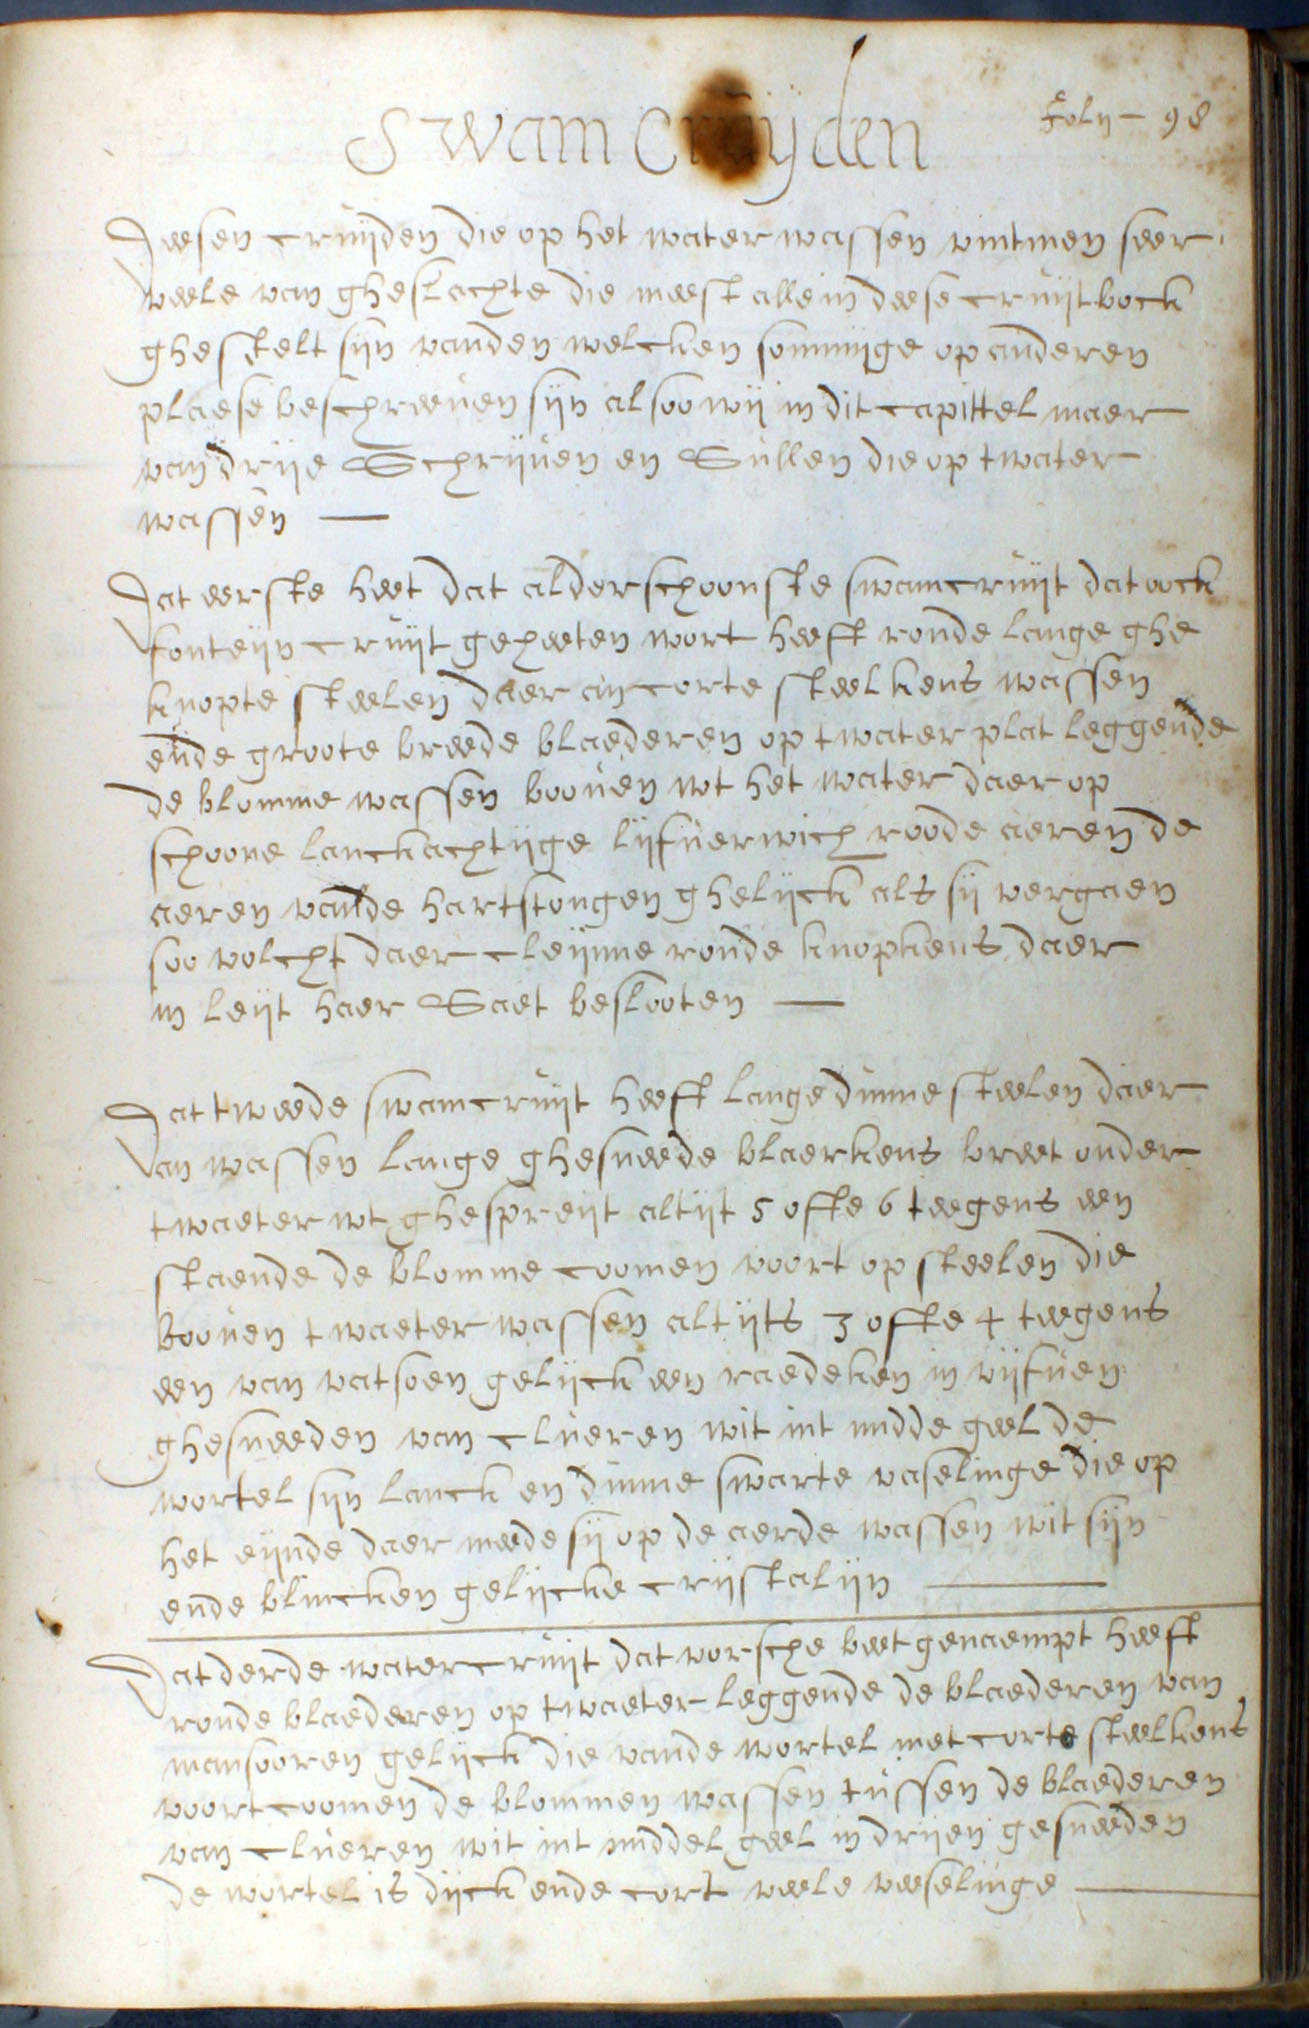 Foly - 98
Swam Cruijden
Deesen cruijden die op het water wassen vintmen seer
veele van gheslachte die meest alle in deese cruijtbock
ghestelt sijn vanden welcken sommige op anderen
plaese beschreeven sijn alsoo wij in dit capittel maer
van drije Schrijven en Sullen die op twater
wassen —
Dat eerste heet dat alderschoonste swamcruijt dat oock
fonteijn cruijt geheeten wort heeft ronde lange ghe
knopte steelen daer an corte steelkens wassen
ende groote breede blaederen op twater plat leggende
de blomme wassen booven wt het water daer op
schoone lanckachtijge lijfverwich roode aeren de
aeren vande hartstongen ghelijck als sij vergaen
soo volcht daer cleijnne ronde knopkens daer
in leijt haer Saet beslooten —
Dat tweede swamcruijt heeft lange dunne steelen daer
van wassen lange ghesneede blaerkens breet onder
twaeter wt ghespreijt altijt 5 offte 6 teegens een
staende de blomme coomen voort op steelen die
booven twaeter wassen altijts 3 offte 4 teegens
een van vatsoen gelijck een raedeken in vijfven
ghesneeden van clueren wit int midde geel de
wortel sijn lanck en dunne swarte vaselinge die op
het eijnde daer meede sij op de aerde wassen wit sijn
ende blincken gelijcke crijstalijn —
Dat derde watercruijt dat vorsche beet genaempt heeft
ronde blaederen op twaeter leggende de blaederen van
mansooren gelijck die vande wortel met corte steelkens
voortcoomen de blommen wassen tussen de blaederen
van clueren wit int middel geel in drijen gesneeden
de wortel is dijck ende cort veele veeselinge —